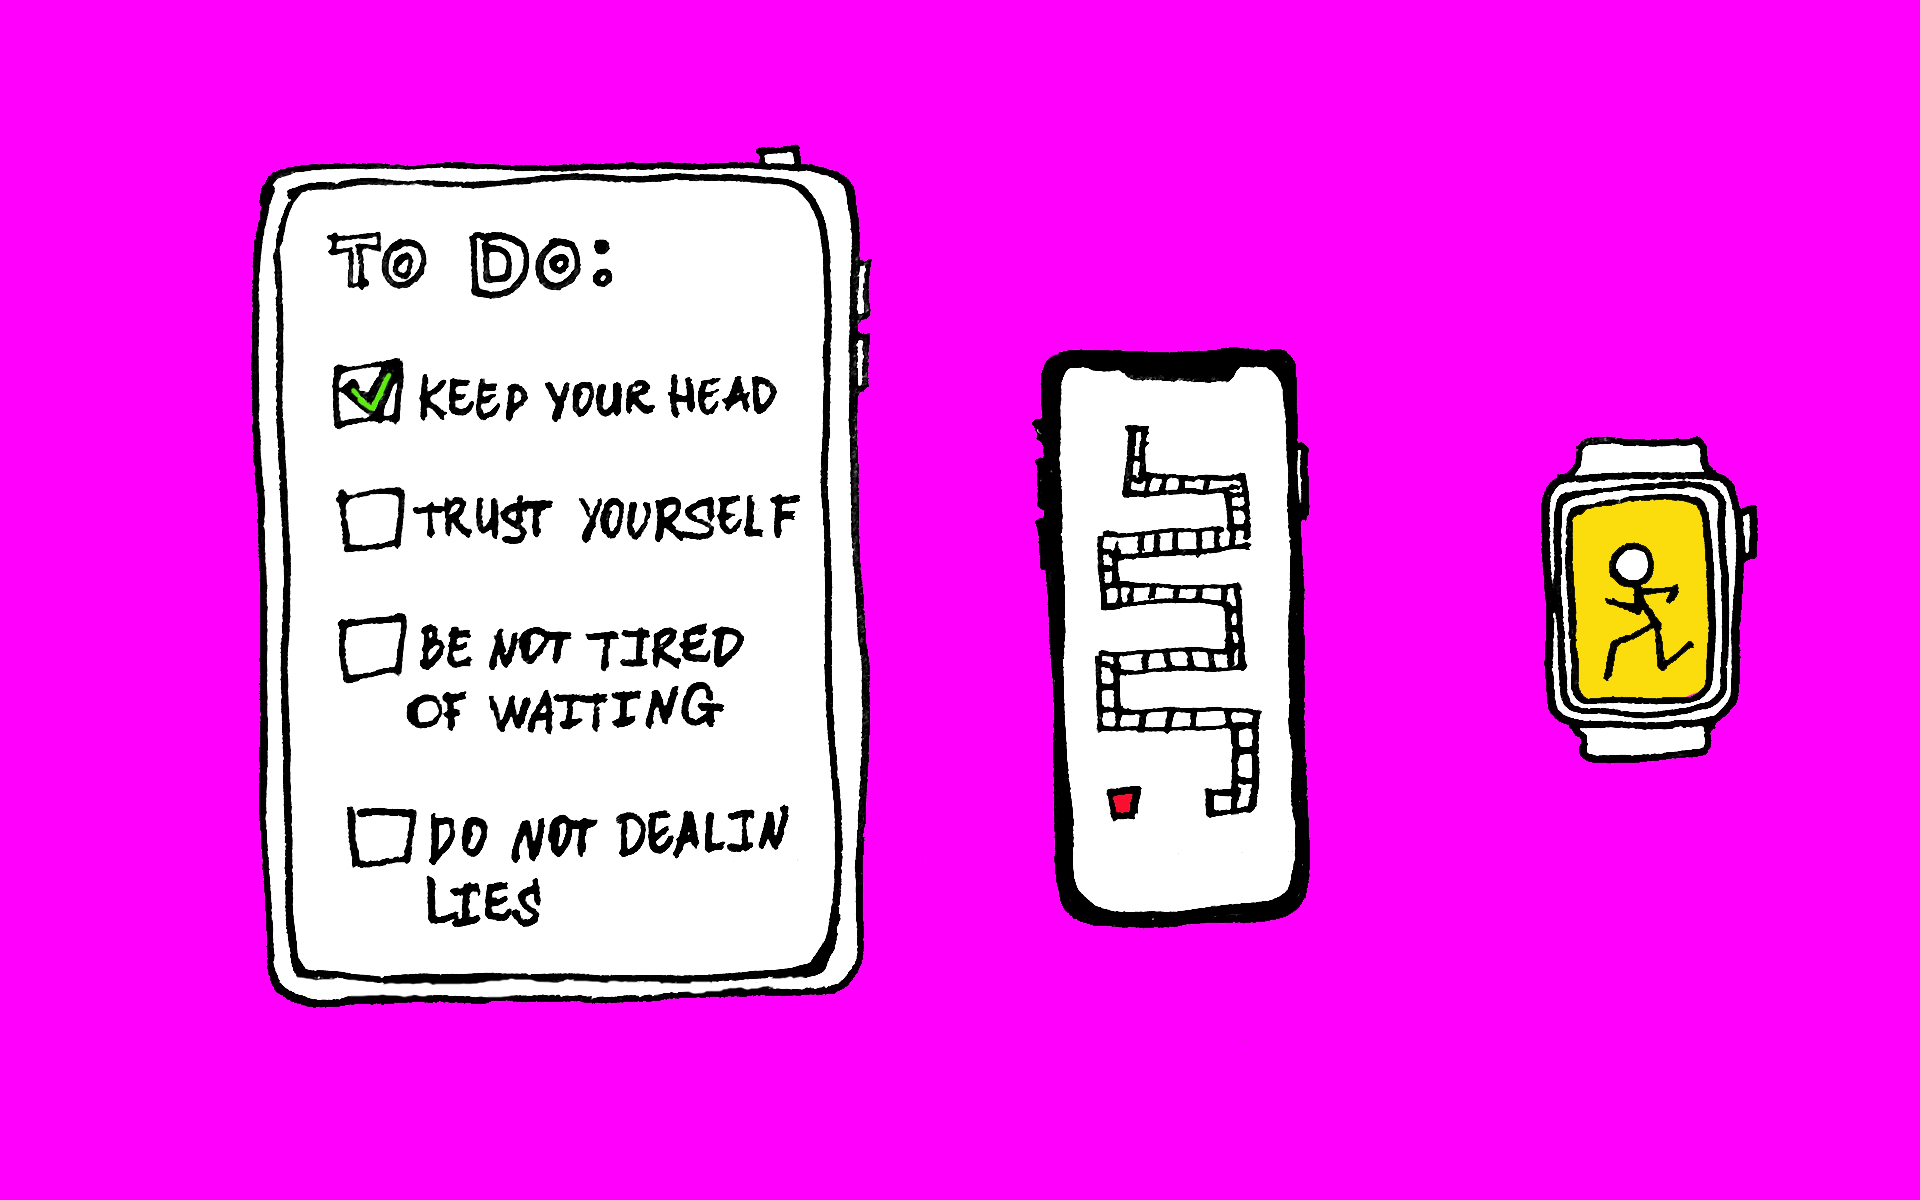 TO DO:
KEEP YOUR HEAD
TRUST YOURSELF
BE NOT TIRED
OF WAITING
DO NOT DEALIN
LIES